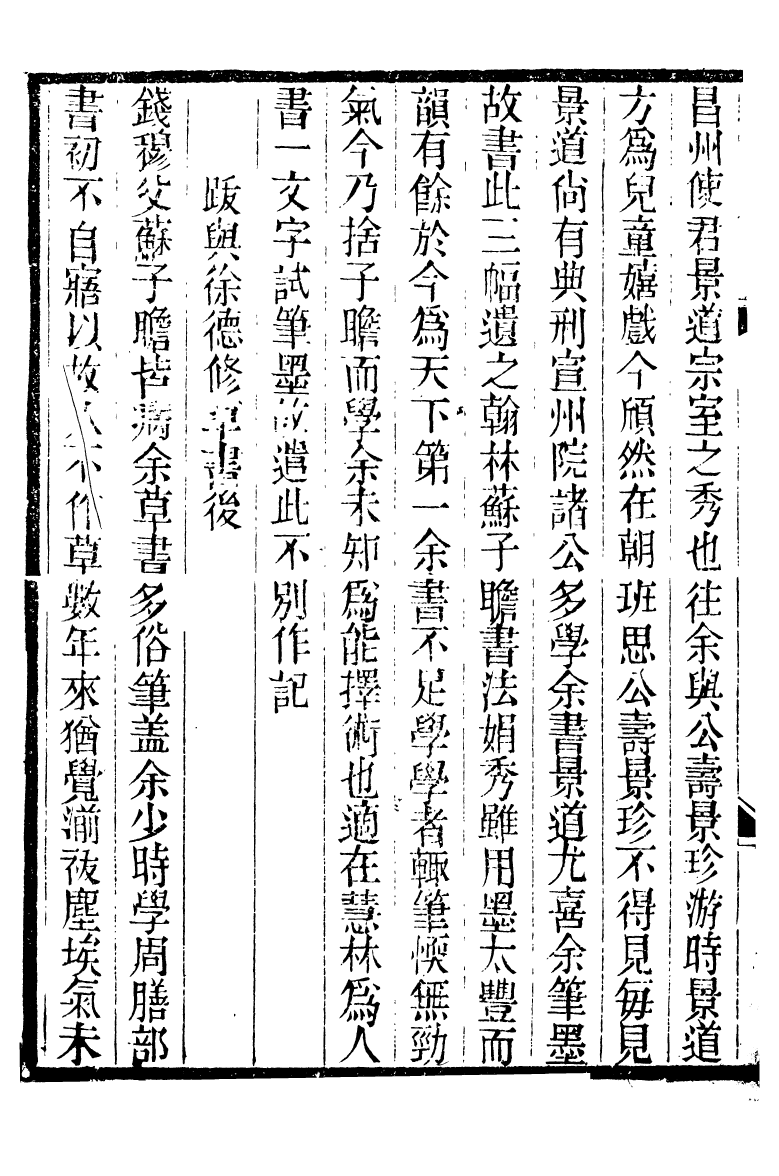 昌州使君景道宗室之秀也往余與公壽景珍游時景道
方爲兒童嬉戲今頎然在朝班思公壽景珍不得見每見
景道尙有典刑宣州院諸公多學余書景道尤喜余筆墨
故書此三幅遺之翰林蘇子瞻書法娟秀雖用墨太豐而
韻有餘於今爲天下第一余書不足學學者輒筆愞無勁
氣今乃捨子瞻而學余未知爲能擇術也適在慧林爲人
書一文字試筆墨故遣此不別作記
跋與徐德修草書後
錢穆父蘇子瞻皆病余草書多俗筆盖余少時學周膳部
書初不自寤以故久不作草數年來猶覺湔祓塵埃氣未